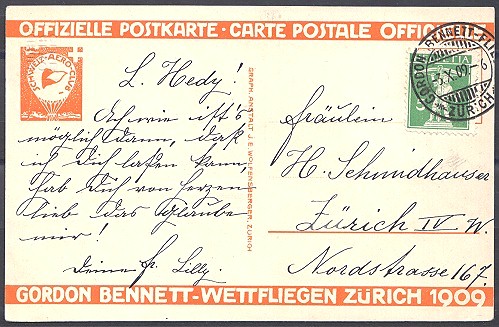 OFFIZIELLE POSTKARTE - CARTE POSTALE OFFICI
SCHWEIZ. AERO-CLUB
L. Hedy!
Ach wie ist's
möglich dann, daß
ich Dich laßen kann,
hab Dich von Herzen
lieb das Glaube
mir!
Deine fr. Lilly.
GRAPH. ANSTALT J. E. WOLFENSBERGER, ZÜRICH
GORDON BENNETT-FLIE
3.X.09.
ZÜRICH
HELVETIA
5
Fräulein
H. Schmidhauser
Zürich IV W.
Nordstrasse 167.
GORDON BENNETT-WETTFLIEGEN ZÜRICH 1909